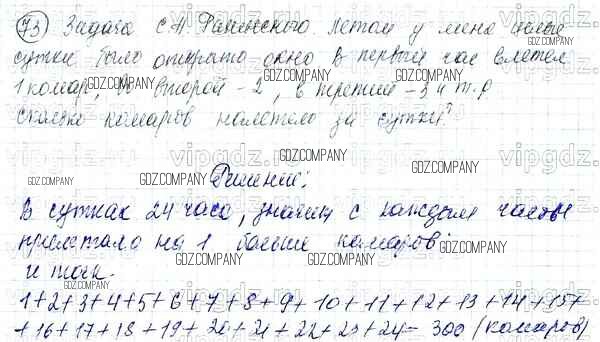 73) Задача С.А. Рачинского. Летом у меня целые
сутки было открыто окно в первый час влетел
1 комар, во второй - 2, в третий - 3 и т.д
сколько комаров налетело за сутки?
Решение:
В сутках 24 часа, значит с каждым часом
прилетало на 1 больше комаров.
и так.
1+2+3+4+5+6+7+8+9+10+11+12+13+14+15+
+16+17+18+19+20+21+22+23+24= 300 (комаров)
GDZ.COMPANY
vipgdz.ru